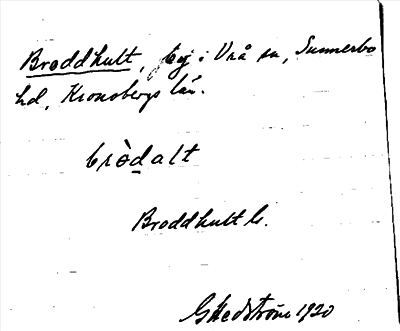 Broddhult, by i Vrå sn, Sunnerbo
hd, Kronobergs län.
bròdalt
Broddhult b.
G Hedström 1920